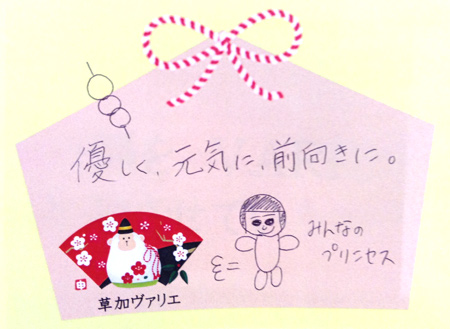 優しく、元気に、前向きに。
みんなの
プリンセス
申
草加ヴァリエ